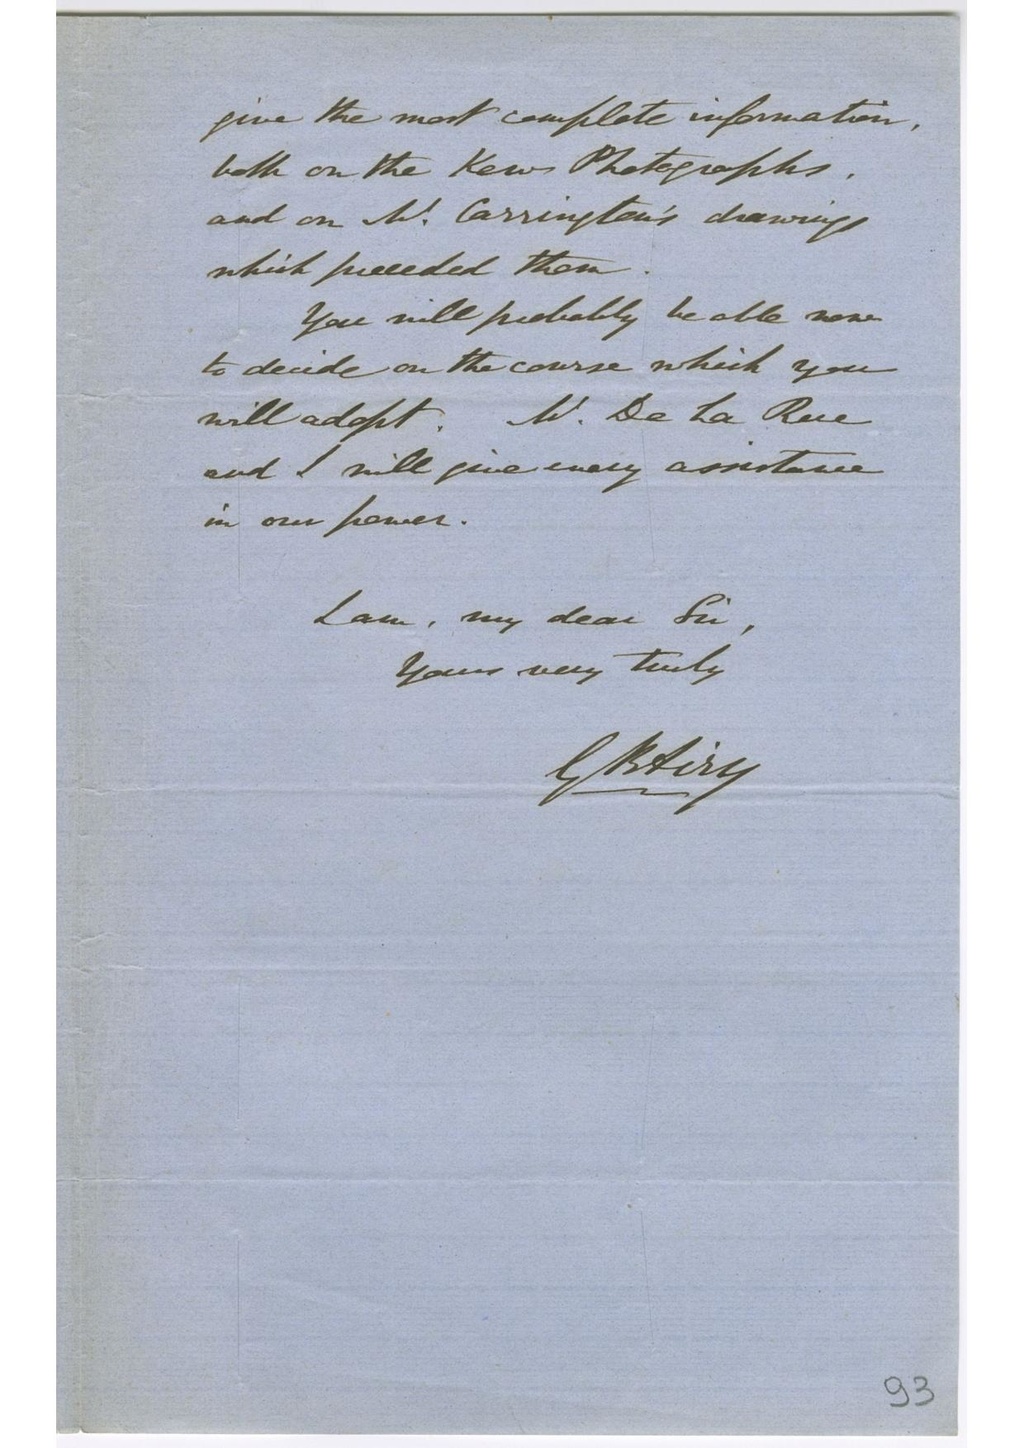 give the most complete information,
both on the Kew Photographs,
and on Mr. Carrington's drawings
which preceded them.
You will probably be able now
to decide on the course which you
will adopt. Mr. De La Rue
and I will give every assistance
in our power.
I am, my dear Sir,
Yours very truly
G B Airy
93